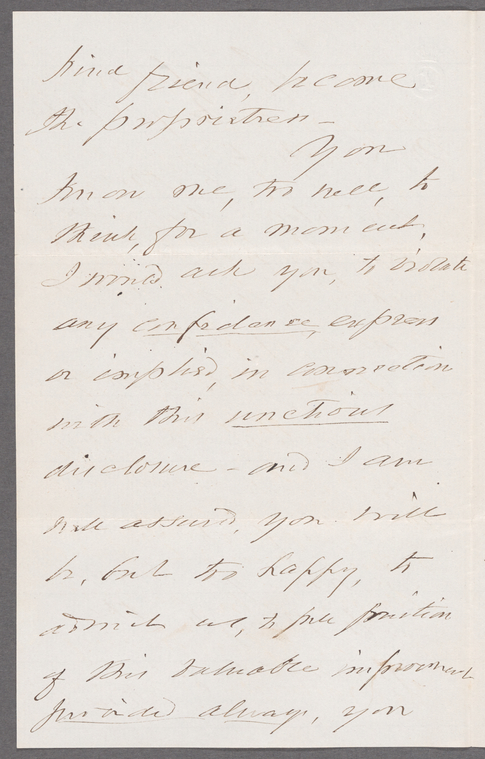 kind friend, become
the proprietress –
You
know me, too well, to
think, for a moment,
I would ask you, to violate
any confidence, express
or implied, in connection
with this unctious
disclosure – and I am
well assured, you will
be, but too happy, to
admit us, to full fruition
of this valuable improvement
provided always, you